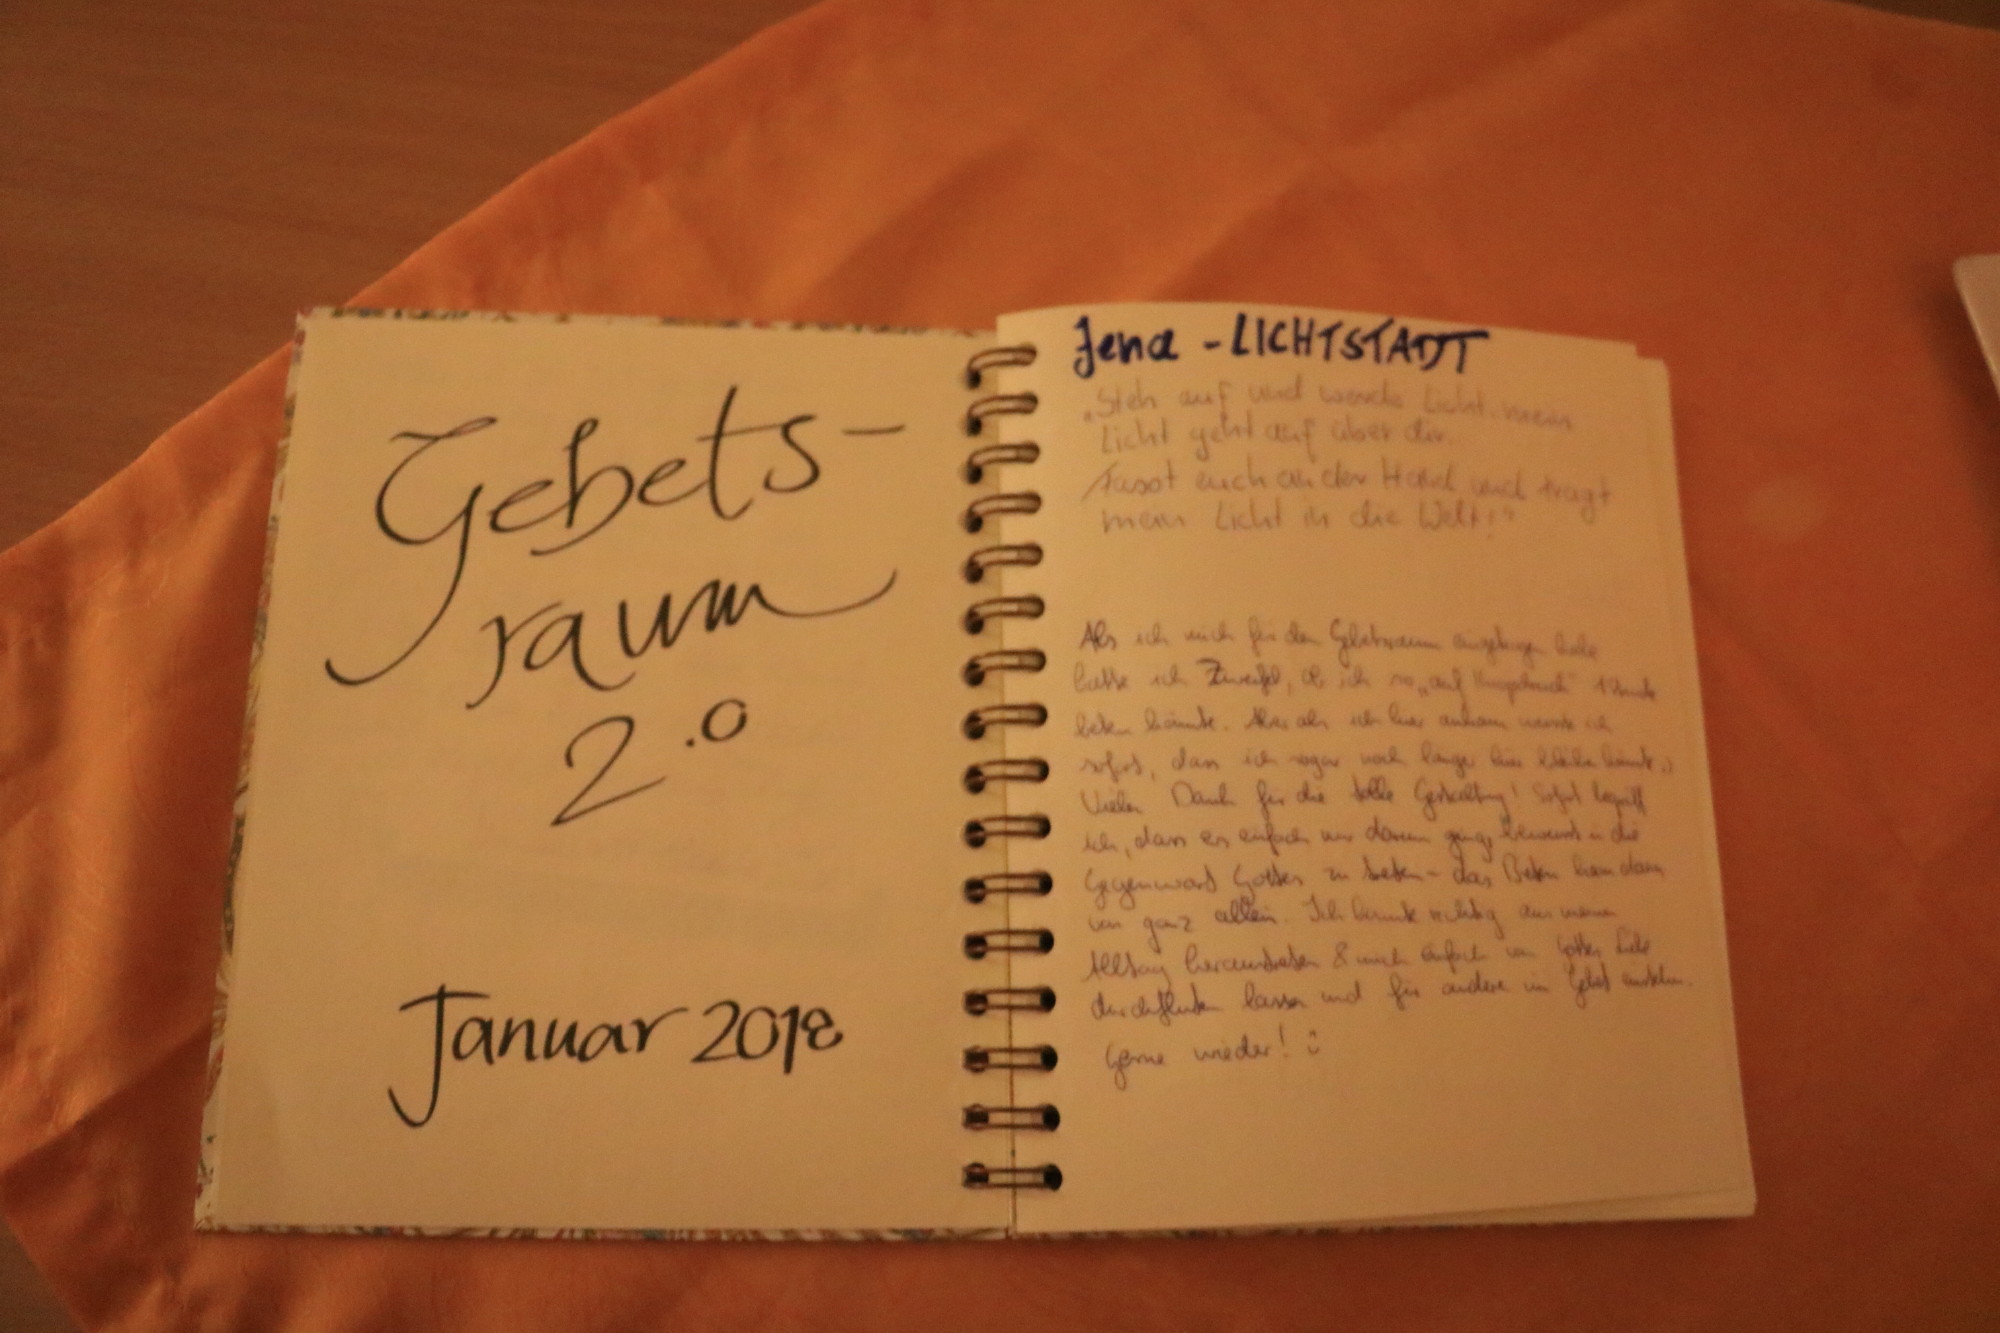 Gebets-
raum
2.0
Januar 2018
Jena - LICHTSTADT
"Steh auf und werde Licht, mein
Licht geht auf über dir.
Fasst euch an der Hand und tragt
mein Licht in die Welt!"
Als ich mich für den Gebetsraum eingetragen habe
hatte ich Zweifel, ob ich so "auf Knopfdruck" 1 Stunde
beten könnte. Aber als ich hier ankam wusste ich
sofort, dass ich sogar noch länger hier bleiben könnte :)
Vielen Dank für die tolle Gestaltung! Sofort begriff
ich, dass es einfach nur darum ging, bewusst in die
Gegenwart Gottes zu treten - das Beten kam dann
von ganz allein. Ich konnte richtig aus meinem
Alltag heraustreten & mich einfach von Gottes Liebe
durchfluten lassen und für andere im Gebet einstehen.
Gerne wieder! :)